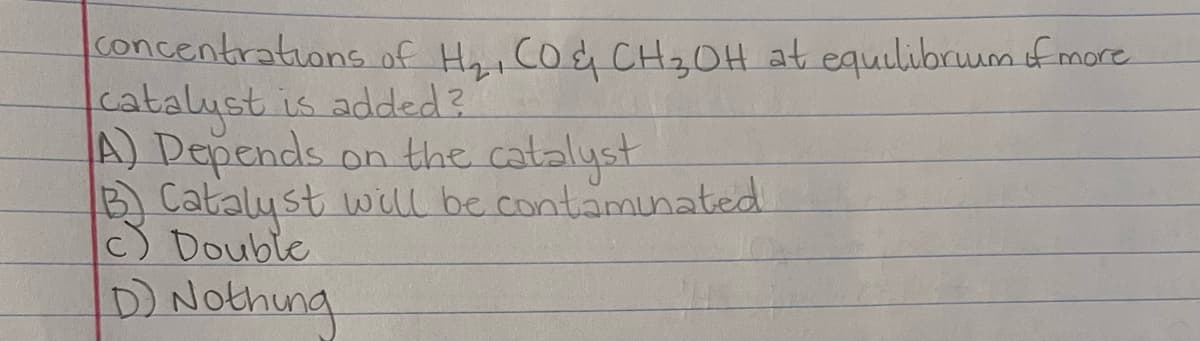 concentrations of H₂, CO & CH₃OH at equilibrium if more
catalyst is added?
A) Depends on the catalyst
B) Catalyst will be contaminated
C) Double
D) Nothing